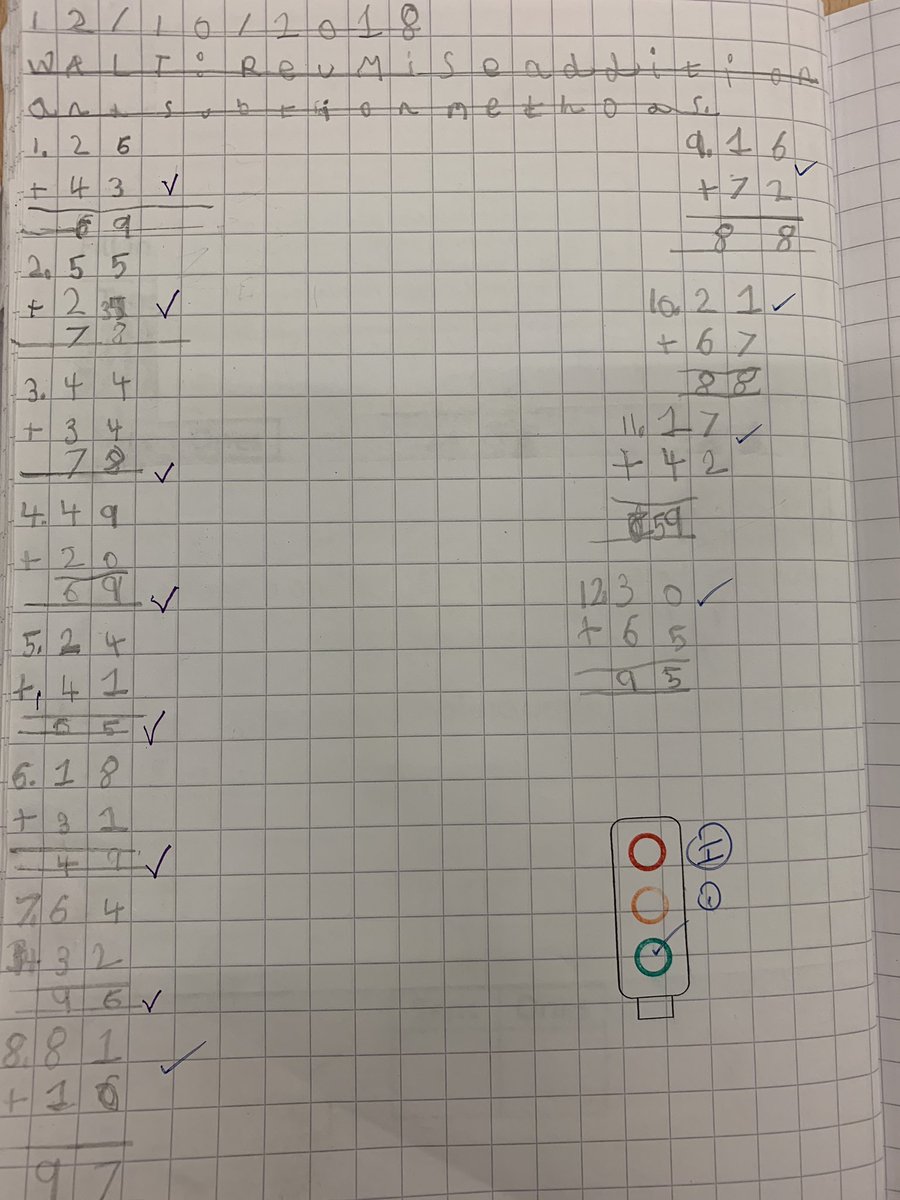 12/10/2018
WALT: RevMise addition
ant subtion methoas.
1. 2 6
+ 4 3 ✓
6 9
2. 5 5
+ 2 ✓
7
3. 4 4
+ 3 4
7 8 ✓
4. 4 9
+ 2 0
6 9 ✓
5. 2 4
+ 4 1
5 ✓
6. 1 8
+ 3 1
4 ✓
7. 6 4
+ 3 2
9 6 ✓
8. 8 1 ✓
+ 1 6
9 7
9. 1 6 ✓
+ 7 2
8 8
10. 2 1 ✓
+ 6 7
8 8
11. 1 7 ✓
+ 4 2
59
12. 3 0 ✓
+ 6 5
9 5